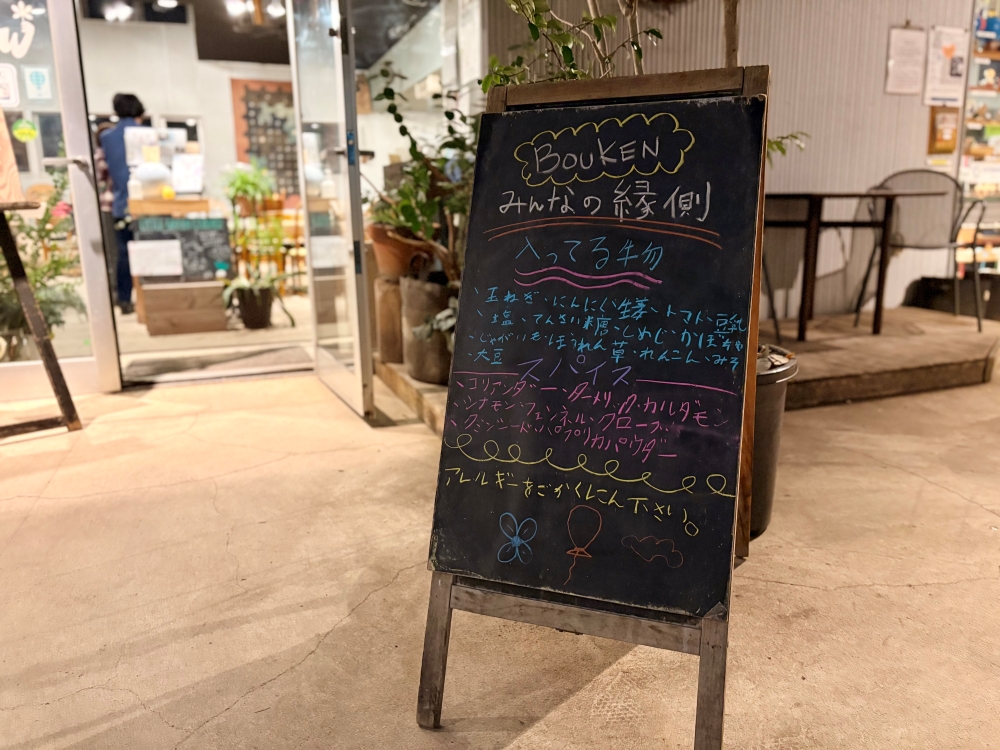 BOUKEN
みんなの縁側
入ってる牛勿
、玉ねぎ・にんにく・生姜・トマト・豆乳
、塩・てんさい糖・しめじ・かぼちゃ
・じゃがいも・ほうれん草・れんこん・みそ
・大豆
スパイス
、コリアンダー・ターメリック・カルダモン
、シナモン・フェンネル・クローブ・
、クミンシード・パプリカパウダー
アレルギーをごかくにん下さい。